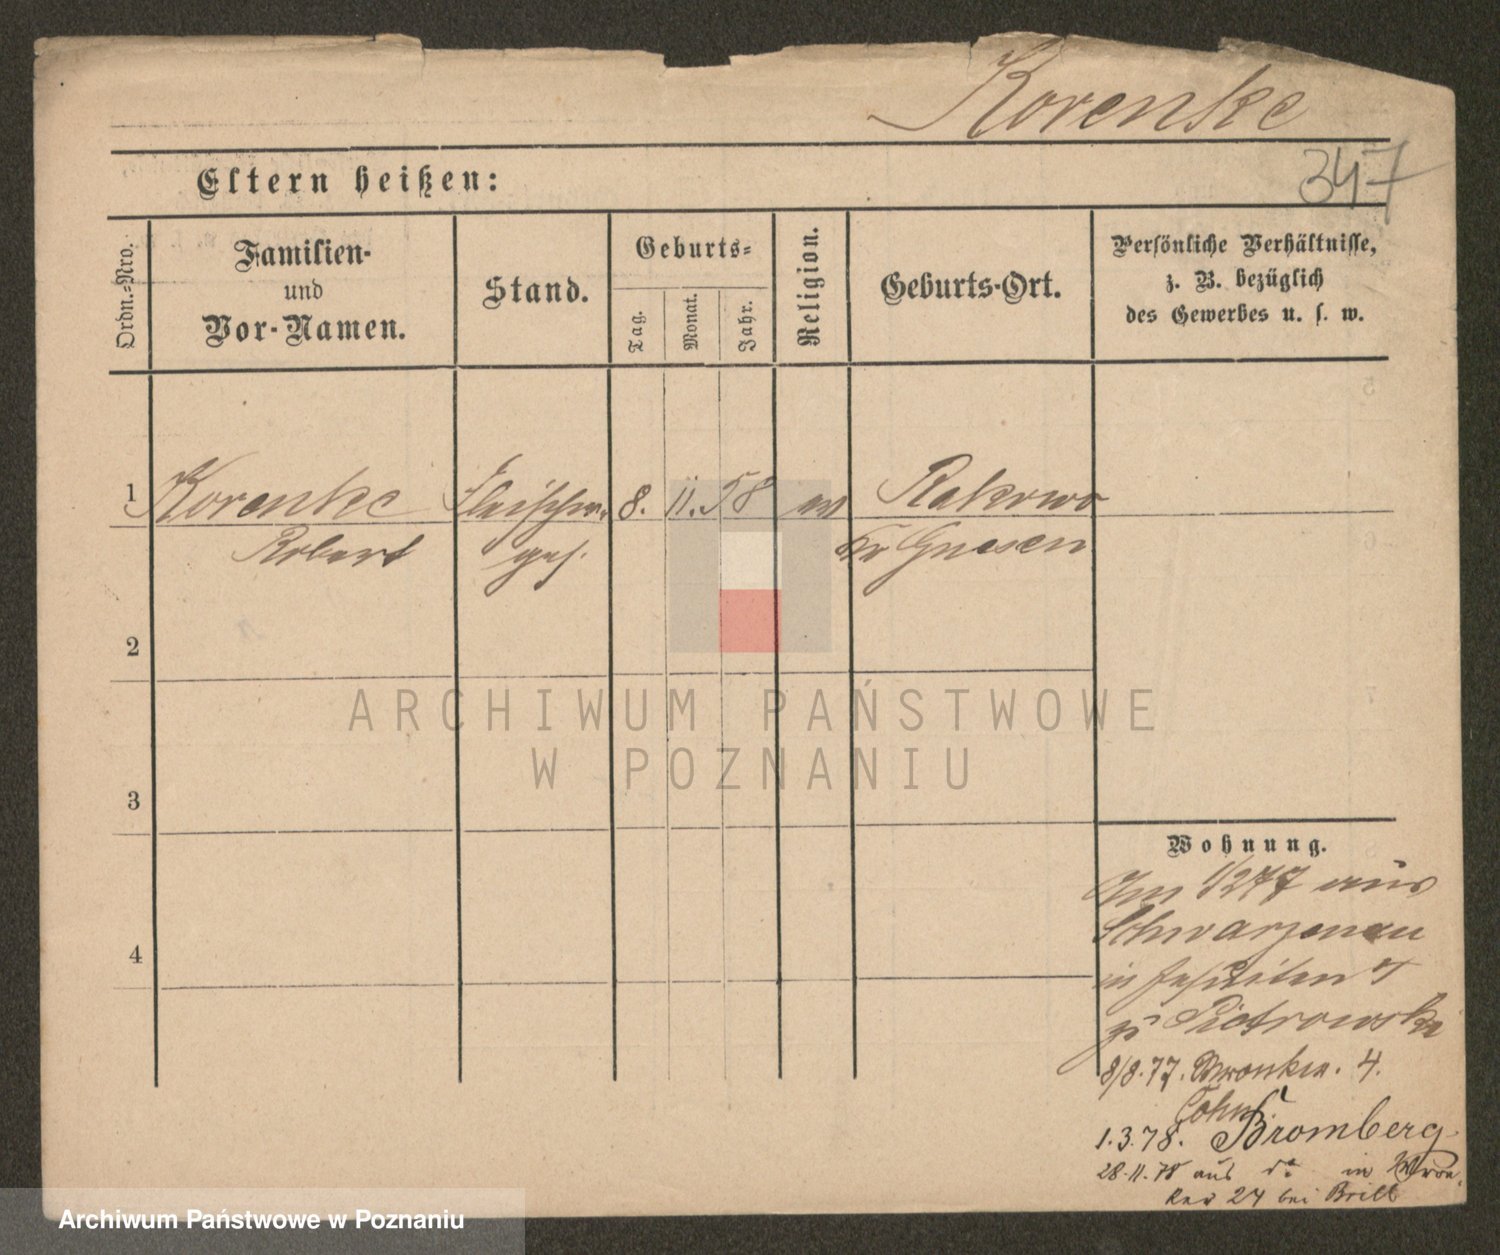 Korenke
347
Eltern heißen:
Ordn.-Nro.
Familien-
und
Vor-Namen.
Stand.
Geburts-
Tag.
Monat.
Jahr.
Religion.
Geburts-Ort.
Persönliche Verhältnisse,
z. B. bezüglich
des Gewerbes u. s. w.
1 Korenke Fleischer- 8. 11. 58 ev Rakowo
Robert ges. Kr Gnesen
2
3
4
ARCHIWUM PAŃSTWOWE
W POZNANIU
Wohnung.
Am 1/2 77 aus
Schwarzenau
in Jesuiten
zu Pietrowski
8/8.77. Wronker. 4.
Cohn
1.3.78. Bromberg
28.11.78 aus do in Wron-
ker 24 bei Brill
Archiwum Państwowe w Poznaniu